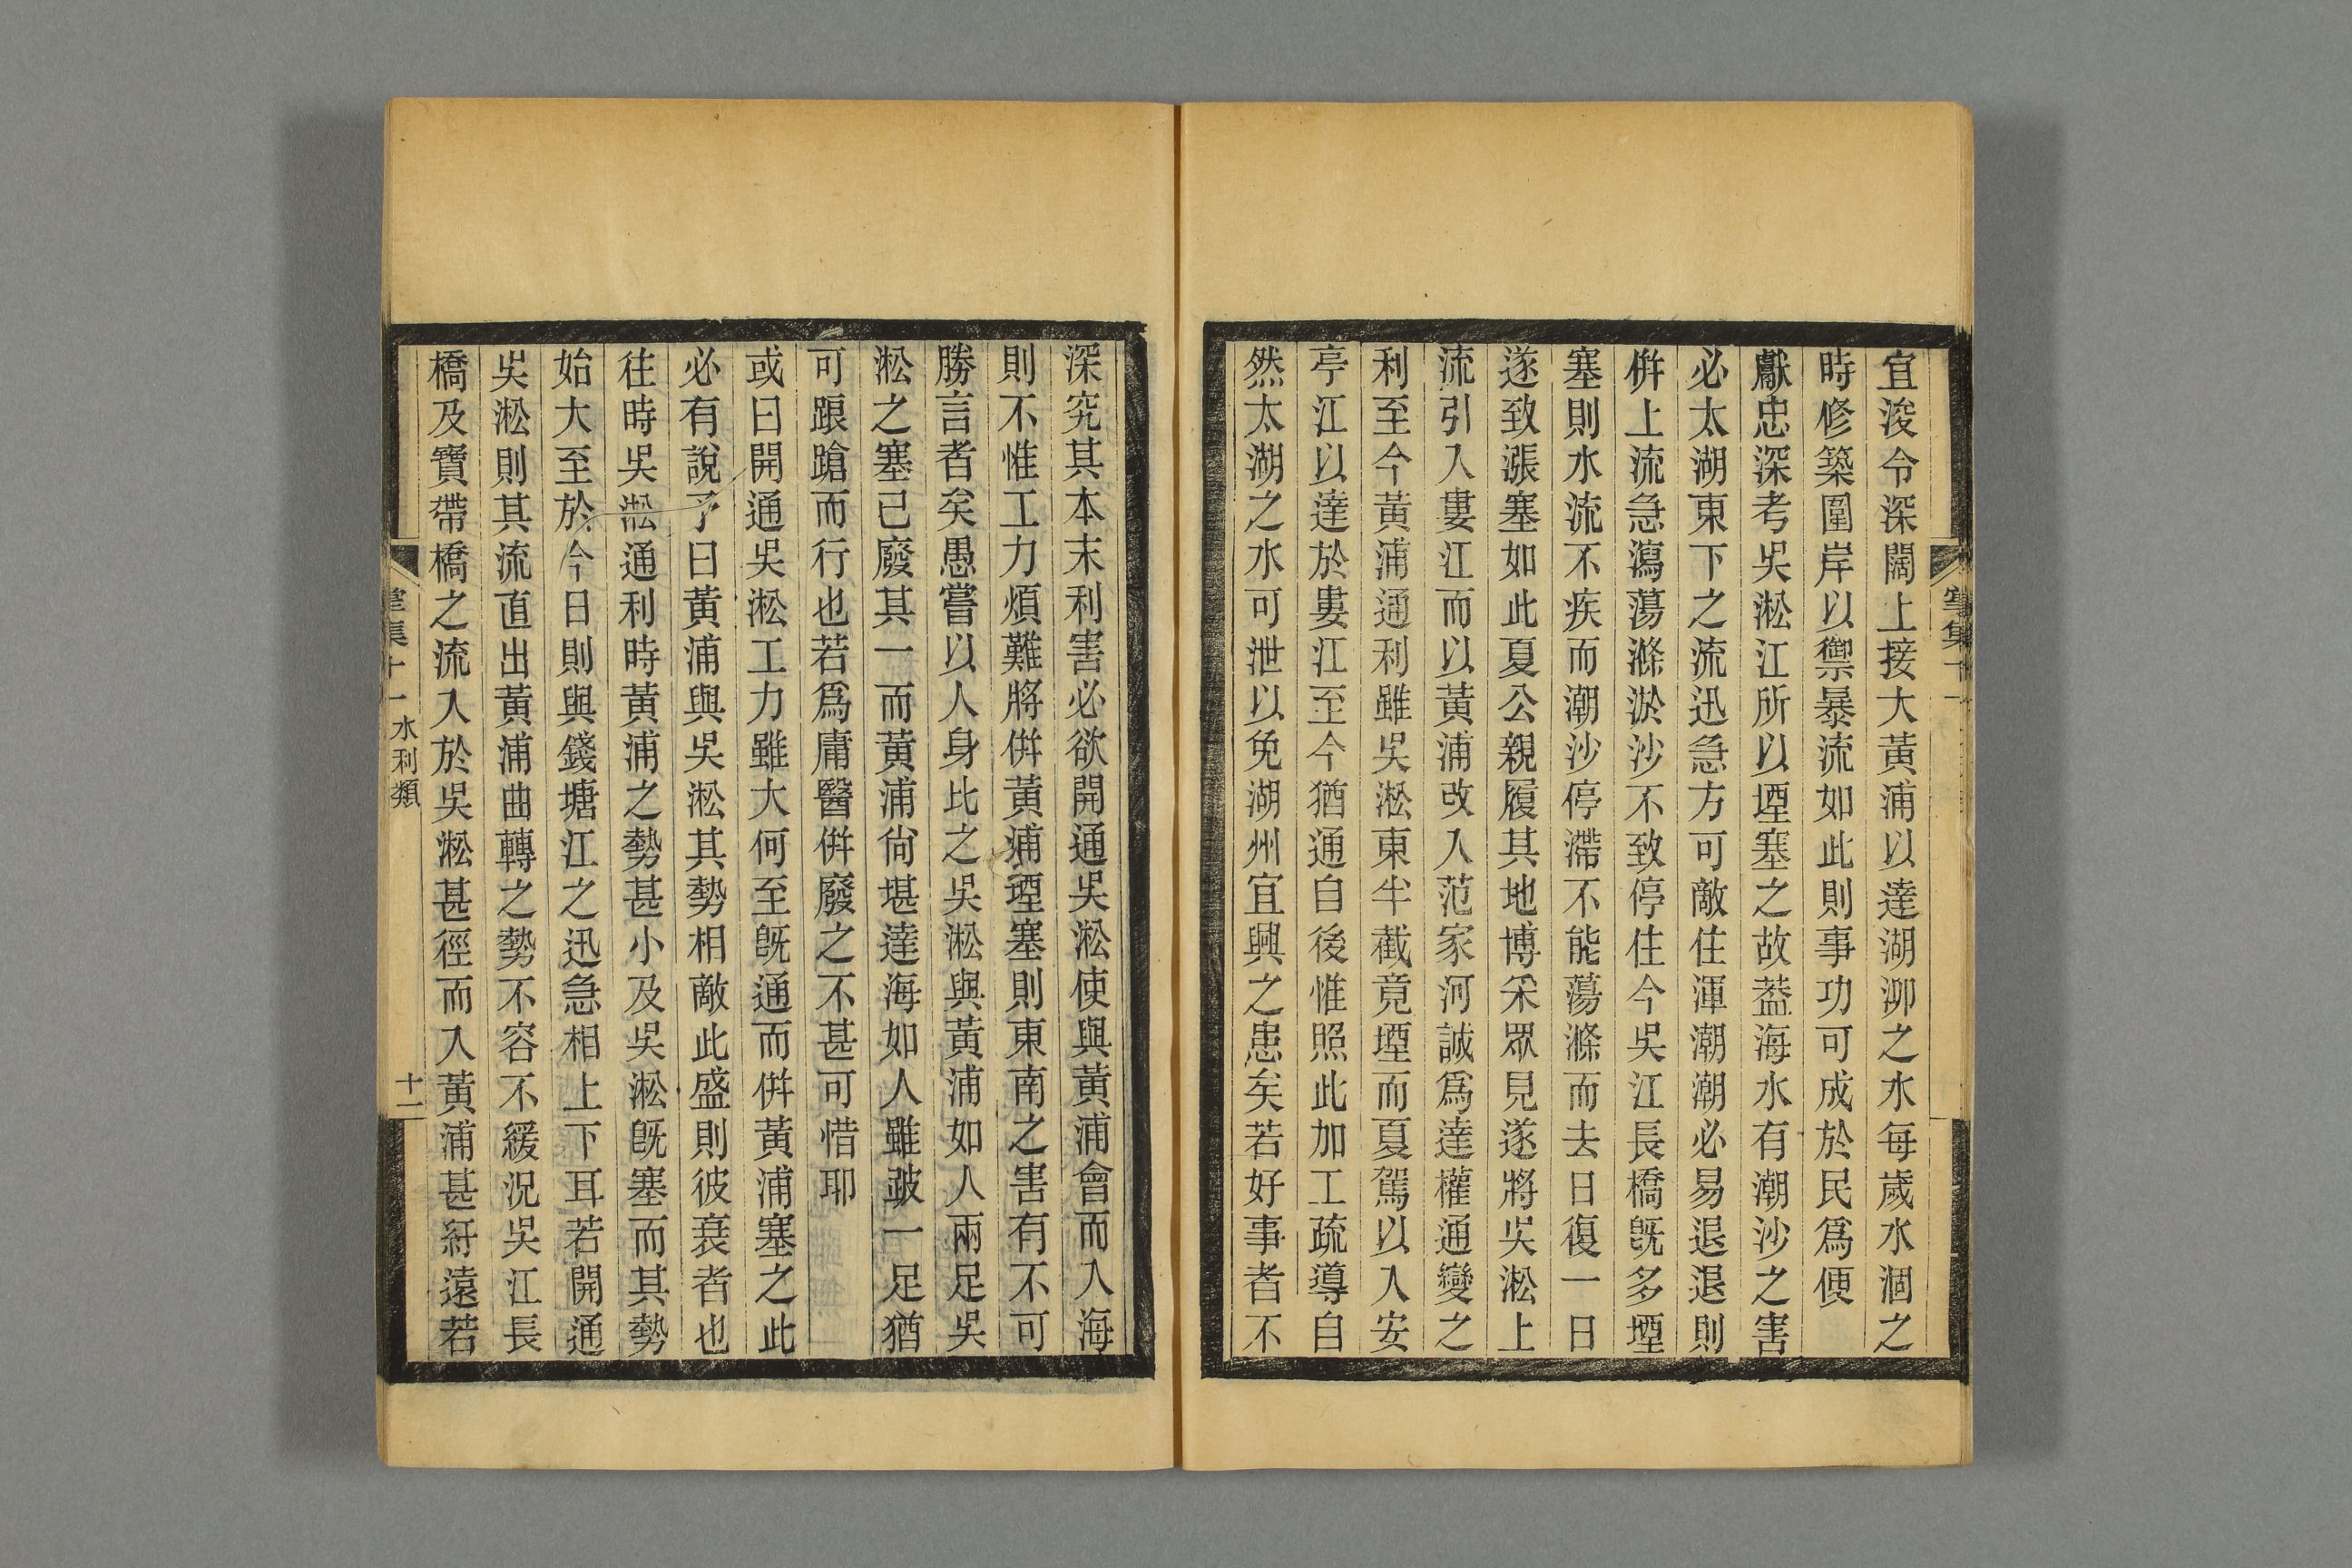 宜浚令深闊上接大黃浦以達湖泖之水每歲水涸之
時修築圍岸以禦暴流如此則事功可成於民爲便
獻忠深考吳淞江所以堙塞之故葢海水有潮沙之害
必太湖東下之流迅急方可敵住渾潮潮必易退退則
併上流急瀉蕩滌淤沙不致停住今吳江長橋旣多堙
塞則水流不疾而潮沙停滯不能蕩滌而去日復一日
遂致漲塞如此夏公親履其地博釆眾見遂將吳淞上
流引入婁江而以黃浦改入范家河誠爲達權通變之
利至今黃浦通利雖吳淞東半截竟堙而夏駕以入安
亭江以達於婁江至今猶通自後惟照此加工疏導自
然太湖之水可泄以免湖州宜興之患矣若好事者不
深究其本末利害必欲開通吳淞使與黃浦會而入海
則不惟工力煩難將併黃浦堙塞則東南之害有不可
勝言者矣愚嘗以人身比之吳淞與黃浦如人兩足吳
淞之塞已廢其一而黃浦尙堪達海如人雖跛一足猶
可踉蹌而行也若爲庸醫併廢之不甚可惜耶
或曰開通吳淞工力雖大何至旣通而併黃浦塞之此
必有說予曰黃浦與吳淞其勢相敵此盛則彼衰者也
往時吳淞通利時黃浦之勢甚小及吳淞旣塞而其勢
始大至於今日則與錢塘江之迅急相上下耳若開通
吳淞則其流直出黃浦曲轉之勢不容不緩況吳江長
橋及寶帶橋之流入於吳淞甚徑而入黃浦甚紆遠若
集十一 水利類 十二